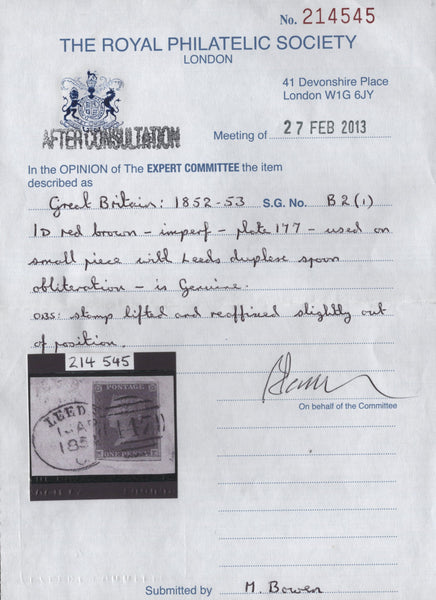 No. 214545
THE ROYAL PHILATELIC SOCIETY
LONDON
41 Devonshire Place
London W1G 6JY
AFTER CONSULTATION
Meeting of 27 FEB 2013
In the OPINION of The EXPERT COMMITTEE the item
described as
Great Britain: 1852-53 S.G. No. B2(1)
1D red brown - imperf - plate 177 - used on
small piece with Leeds duplese spoon
obliteration - is Genuine.
OBS: stamp lifted and reaffixed slightly out
of position.
214 545
POSTAGE
LEED
185
ONE PENNY
On behalf of the Committee
Submitted by M. Bowen